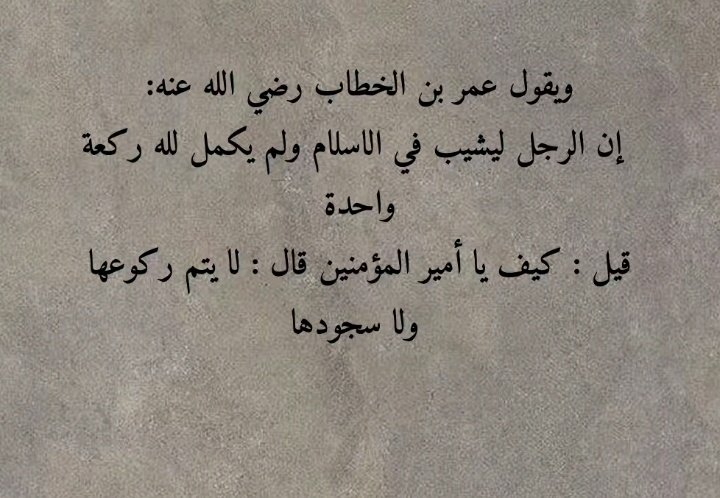 ويقول عمر بن الخطاب رضي الله عنه:
إن الرجل ليشيب في الاسلام ولم يكمل لله ركعة
واحدة
قيل : كيف يا أمير المؤمنين قال : لا يتم ركوعها
ولا سجودها